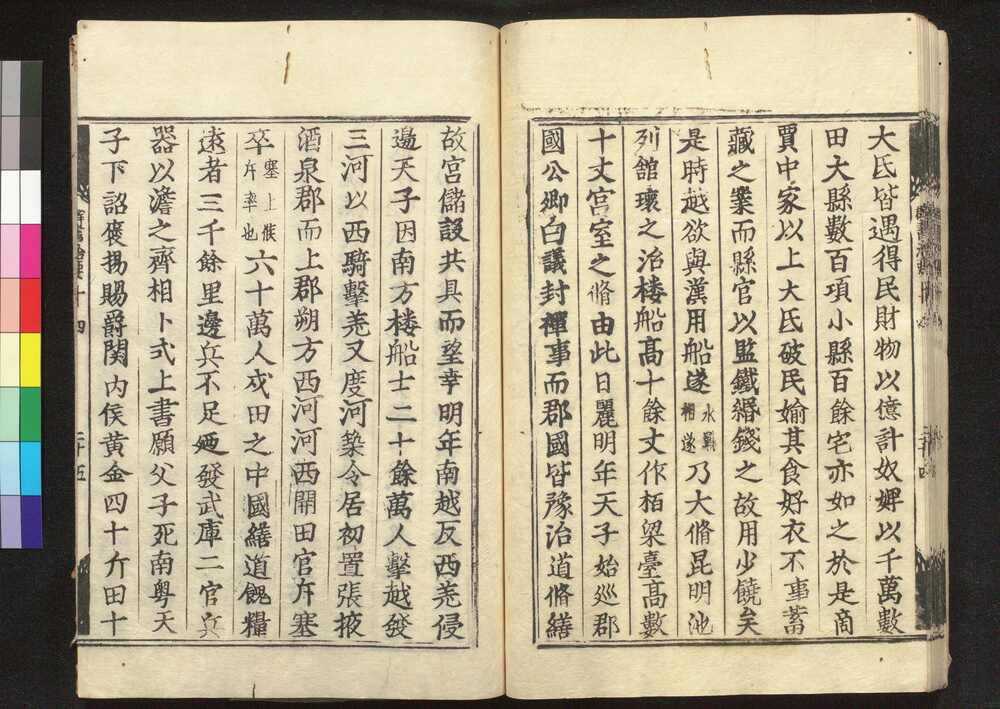 大氐皆遇得民財物以億計奴婢以千萬數
田大縣數百項小縣百餘宅亦如之於是商
賈中家以上大氐破民媮其食好衣不事蓄
藏之業而縣官以監鐵緡錢之故用少饒矣
是時越欲與漢用船遂水戰相遂乃大脩昆明池
列館環之治楼船高十餘丈作栢梁臺高數
十丈宮室之脩由此日麗明年天子始巡郡
國公卿白議封禪事而郡國皆豫治道脩繕
故宮儲設共具而望幸明年南越反西羌侵
邊天子因南方楼船士二十餘萬人擊越發
三河以西騎擊羌又度河築令居初置張掖
酒泉郡而上郡朔方西河河西開田官斥塞
卒塞上候斥卒也六十萬人戍田之中國繕道餽糧
遠者三千餘里邊兵不足廼發武庫工官兵
器以澹之齊相卜式上書願父子死南粤天
子下詔襃揚賜爵関內侯黄金四十斤田十
十四
二十五